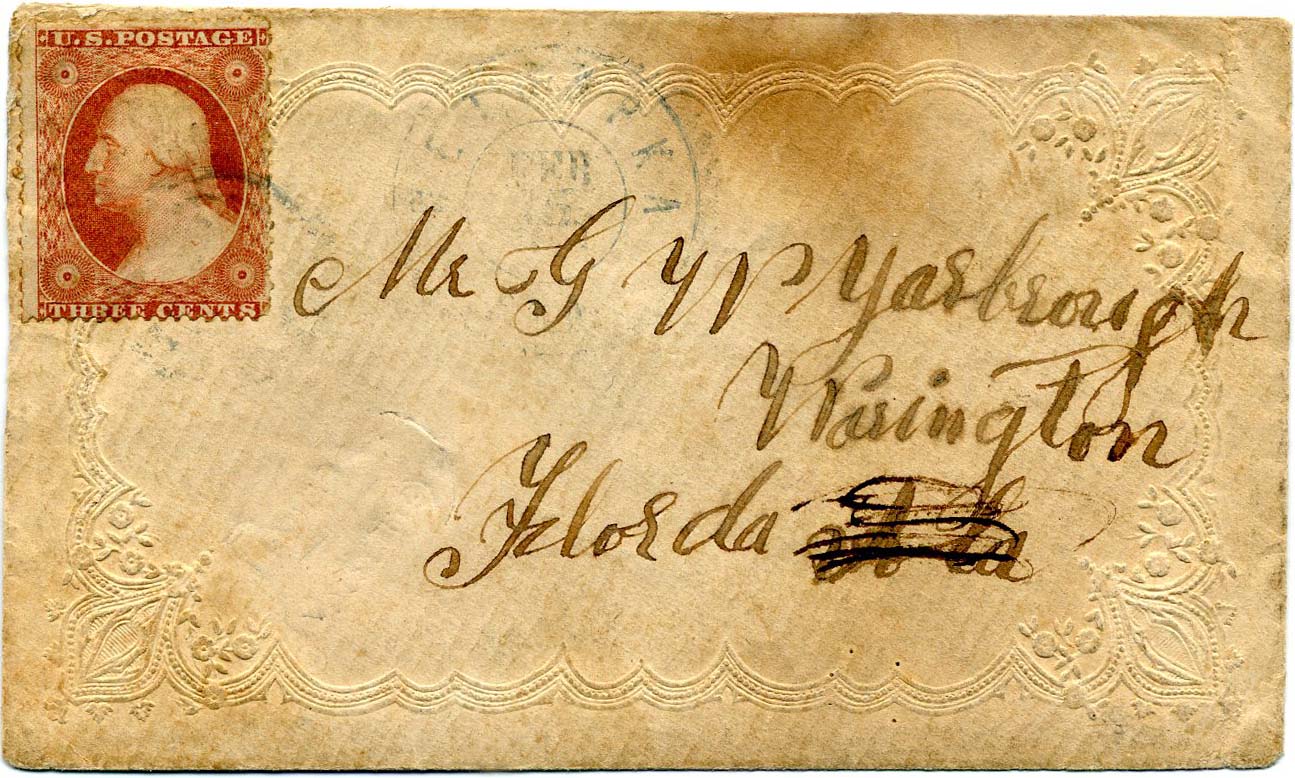 U.S. POSTAGE
THREE CENTS
FEB
Mr G W P Yarbrough
Warington
Florda